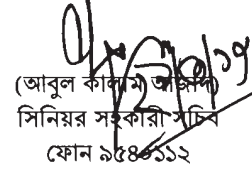 (আবুল কালাম আজাদ)
সিনিয়র সহকারী সচিব
ফোন ৯৫৪০১১২